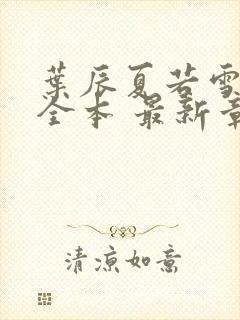 葉辰夏若雪
全本 最新章
清凉如意